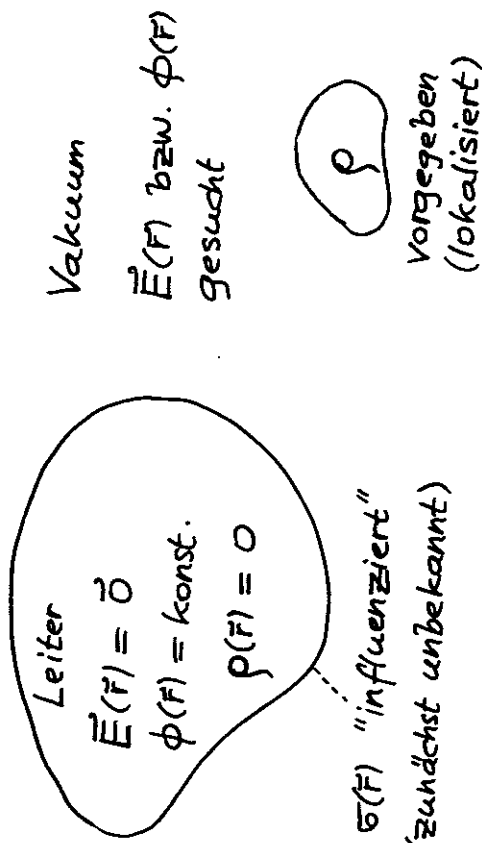 Leiter
E⃗(r⃗) = 0⃗
ϕ(r⃗) = konst.
ρ(r⃗) = 0
σ(r⃗) "influenziert"
(zunächst unbekannt)
Vakuum
E⃗(r⃗) bzw. ϕ(r⃗)
gesucht
ρ
vorgegeben
(lokalisiert)